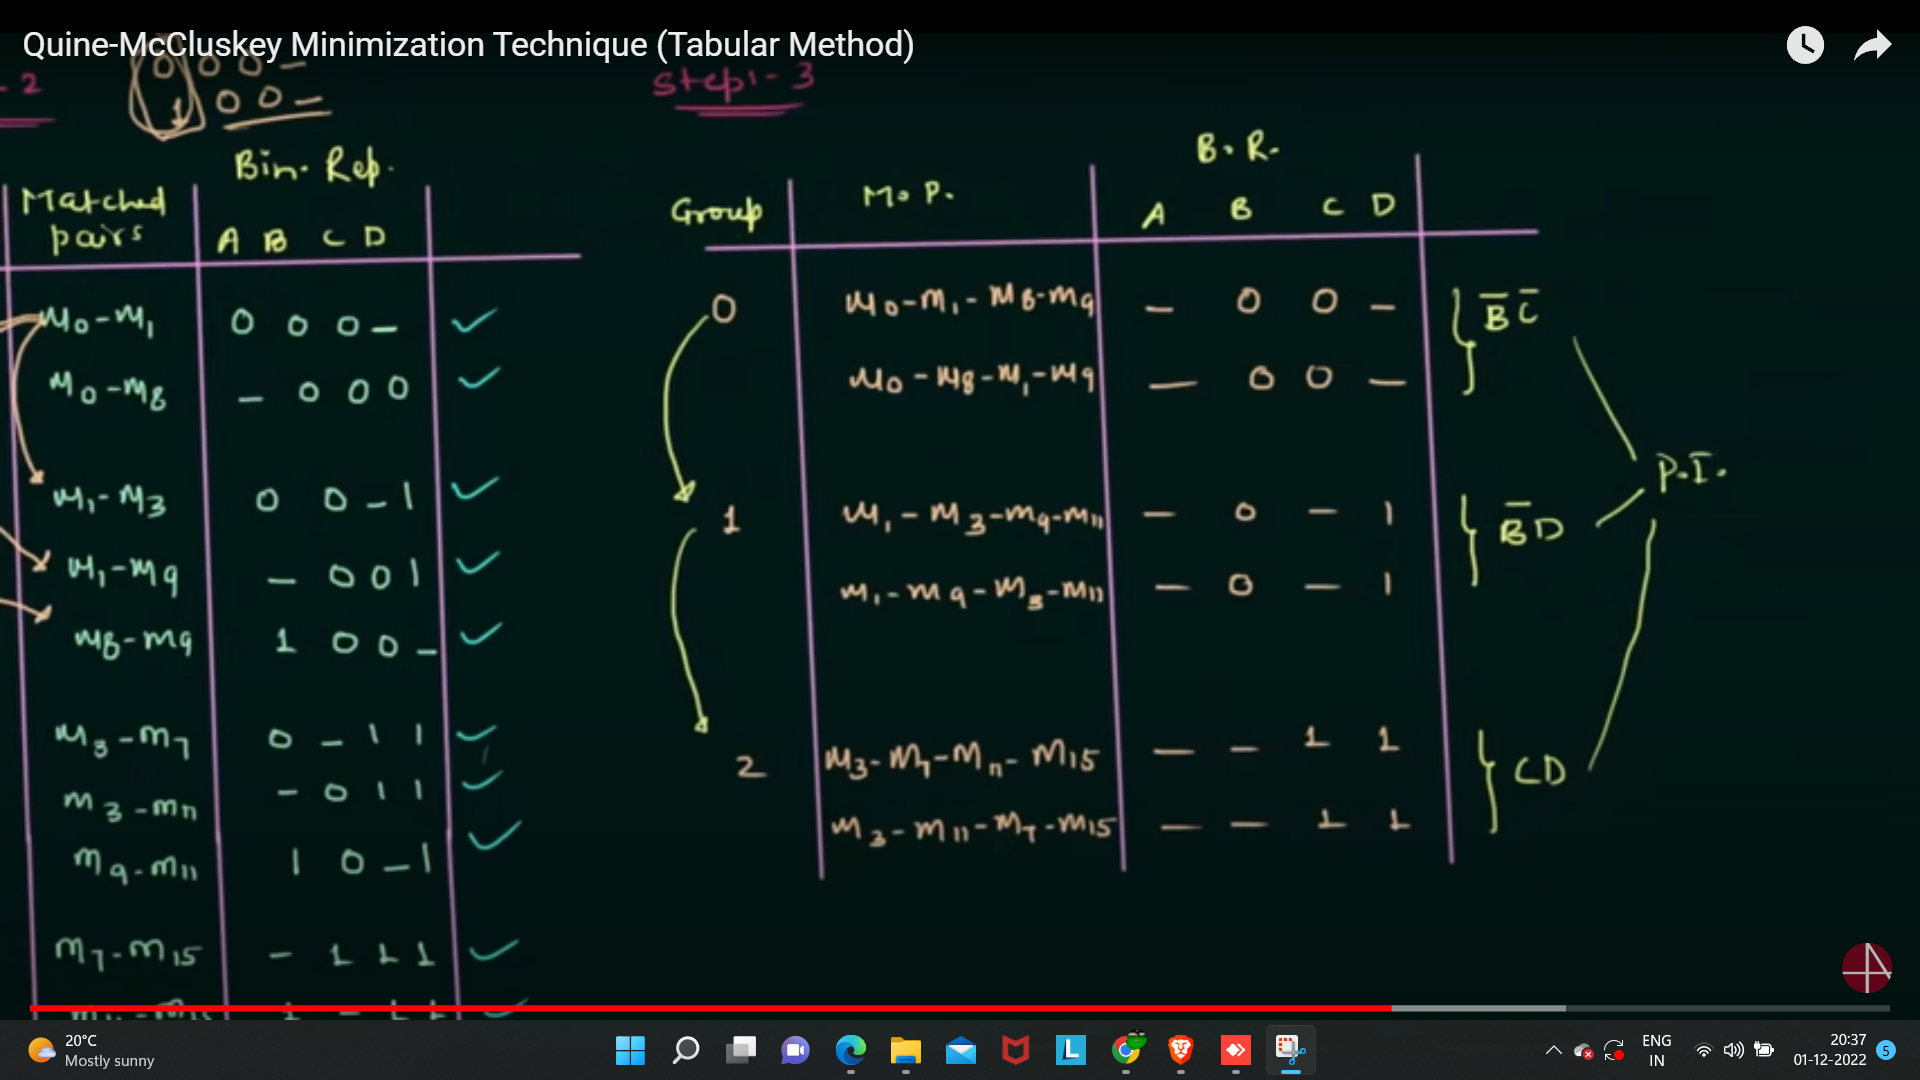 Quine-McCluskey Minimization Technique (Tabular Method)
- 2
0 0 0 –
1 0 0 –
Step:- 3
Bin. Rep.
Matched pairs
A B C D
m0-m1 0 0 0 – ✓
m0-m8 – 0 0 0 ✓
m1-m3 0 0 – 1 ✓
m1-m9 – 0 0 1 ✓
m8-m9 1 0 0 – ✓
m3-m7 0 – 1 1 ✓
m3-m11 – 0 1 1 ✓
m9-m11 1 0 – 1 ✓
m7-m15 – 1 1 1 ✓
B. R.
Group M. P. A B C D
0 m0-m1-m8-m9 – 0 0 – B̅ C̅
m0-m8-m1-m9 – 0 0 –
P.I.
1 m1-m3-m9-m11 – 0 – 1 B̅D
m1-m9-m3-m11 – 0 – 1
2 m3-m7-m11-m15 – – 1 1 CD
m3-m11-m7-m15 – – 1 1
20°C
Mostly sunny
ENG
IN
20:37
01-12-2022
5